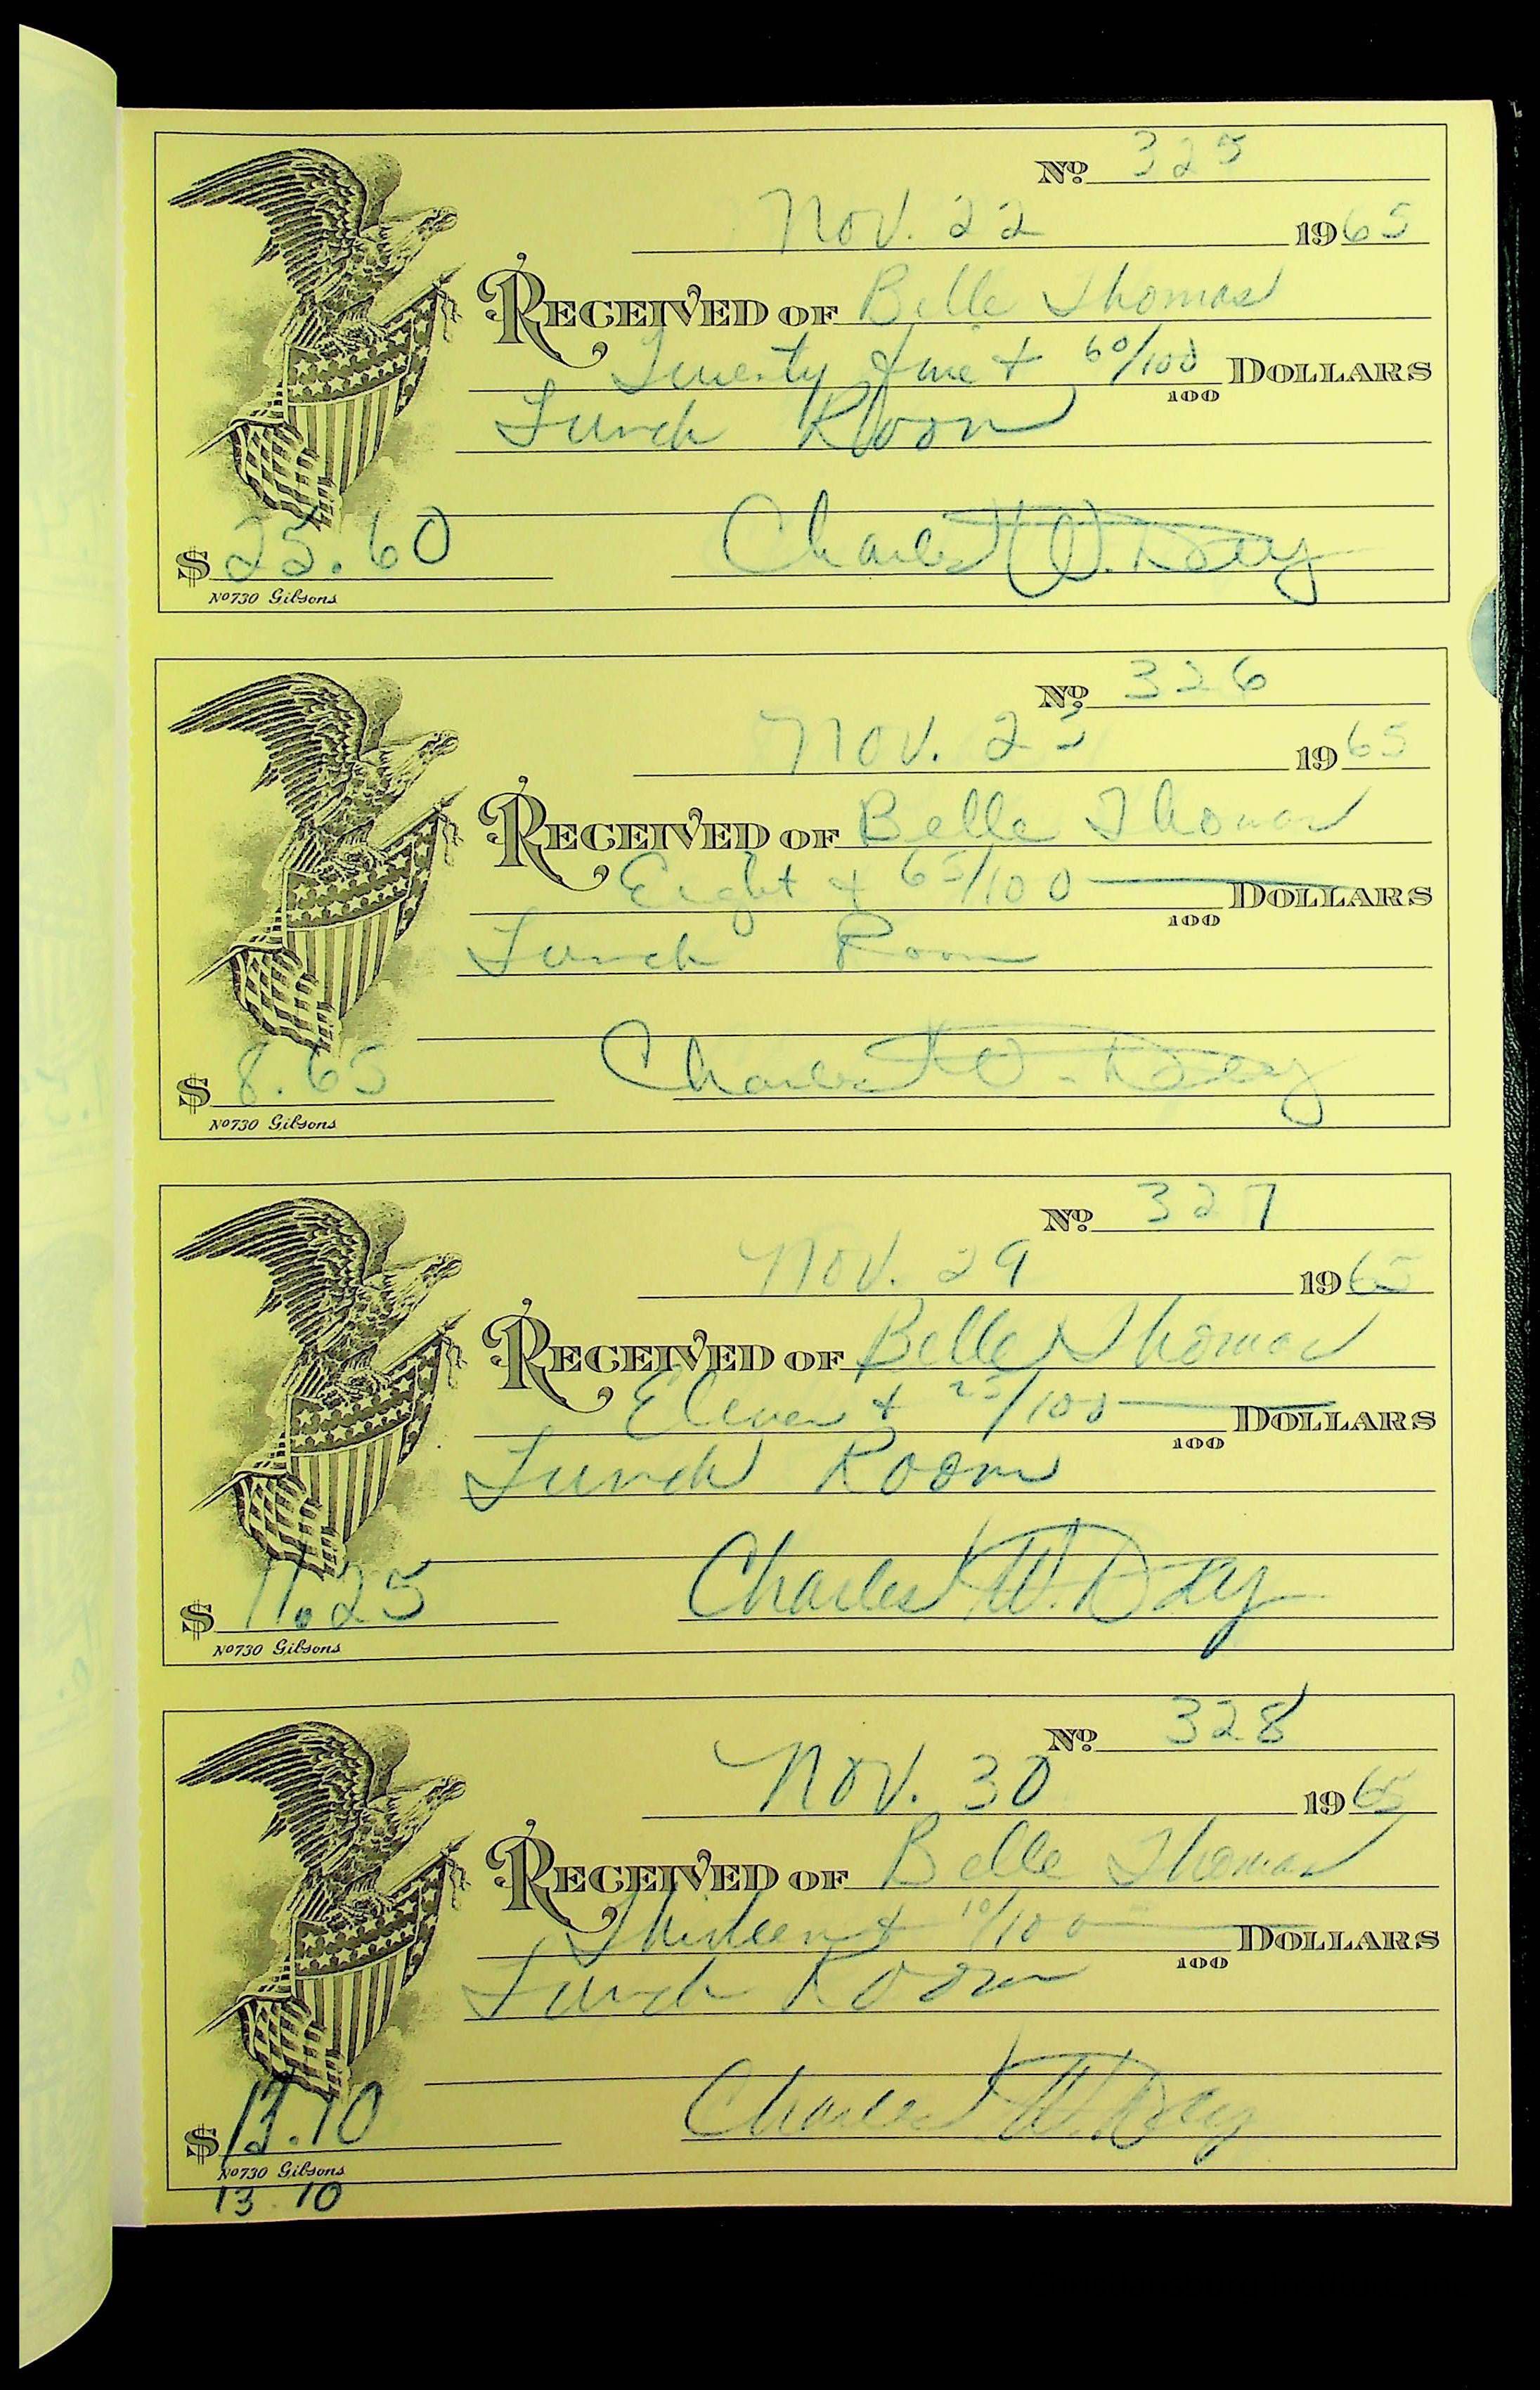 No. 325
Nov. 22 1965
RECEIVED OF Belle Thomas
Twenty five + 60/100 DOLLARS
100
Lunch Room
$ 25.60 Charles W. Day
No 730 Gibsons
No. 326
Nov. 23 1965
RECEIVED OF Belle Thomas
Eight + 65/100 DOLLARS
100
Lunch Room
$ 8.65 Charles W. Day
No 730 Gibsons
No. 327
Nov. 29 1965
RECEIVED OF Belle Thomas
Eleven + 25/100 DOLLARS
100
Lunch Room
$ 11.25 Charles W. Day
No 730 Gibsons
No. 328
Nov. 30 1965
RECEIVED OF Belle Thomas
Thirteen + 10/100 DOLLARS
100
Lunch Room
$ 13.10 Charles W. Day
No 730 Gibsons
13.10